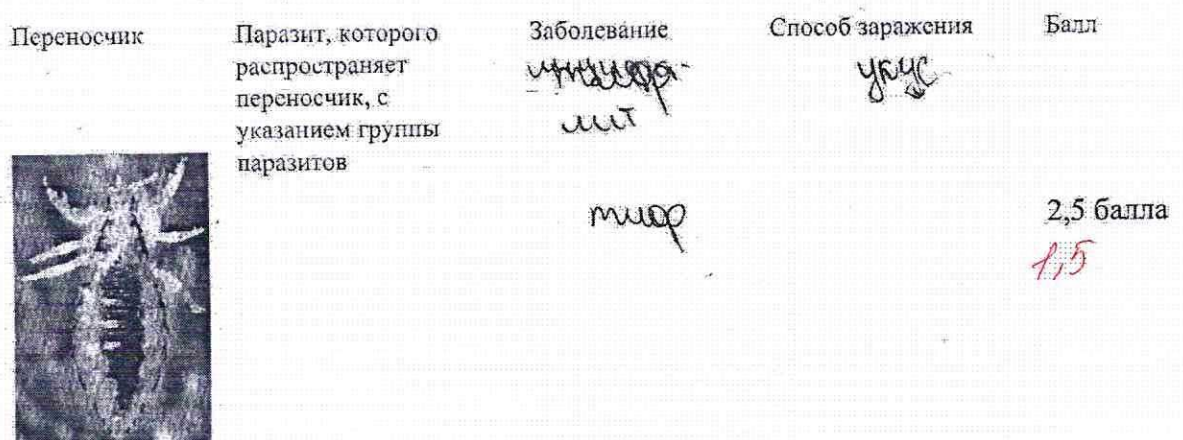 Переносчик
Паразит, которого
распространяет
переносчик, с
указанием группы
паразитов
Заболевание
Способ заражения
укус
Балл
тиф
2,5 балла
1,5